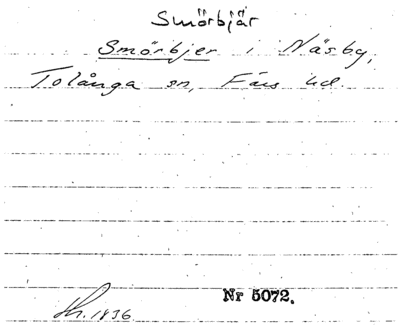 Smörbjär
Smörbjer i Näsby,
Tolånga sn, Färs hd.
Nr 5072.
1836